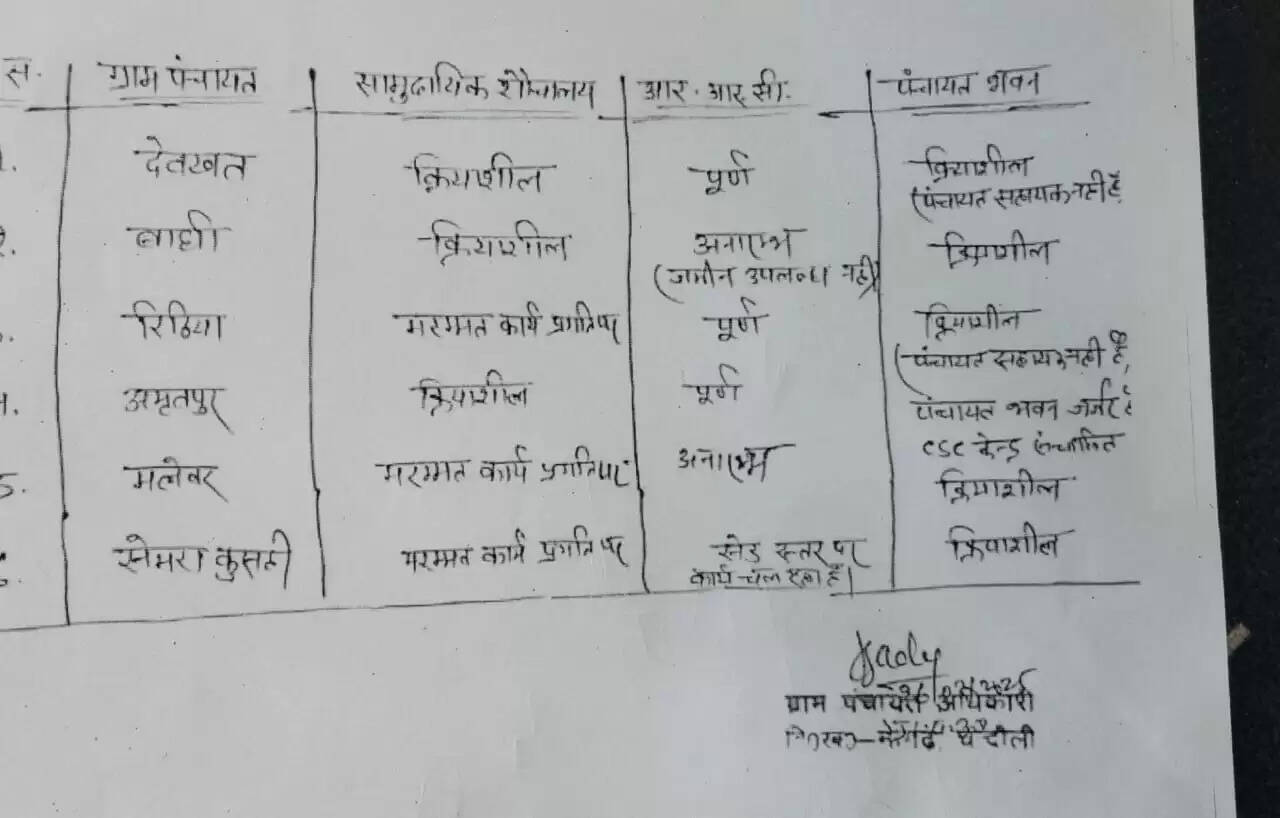 स. ग्राम पंचायत सामुदायिक शौचालय आर. आर. सी. पंचायत भवन
देवखत क्रियाशील पूर्ण क्रियाशील
(पंचायत सहायक नही है
बाघी क्रियाशील अनारम्भ क्रियाशील
(जमीन उपलब्ध नही)
रिठिया मरम्मत कार्य प्रगति पर पूर्ण क्रियाशील
(पंचायत सहायक नही है)
अमृतपुर क्रियाशील पूर्ण पंचायत भवन जर्जर है
CSC केन्द्र संचालित
5. मलेवर मरम्मत कार्य प्रगति पर अनारम्भ क्रियाशील
सेमरा कुसही मरम्मत कार्य प्रगति पर सेड स्तर पर क्रियाशील
कार्य चल रहा है।
ग्राम पंचायत अधिकारी